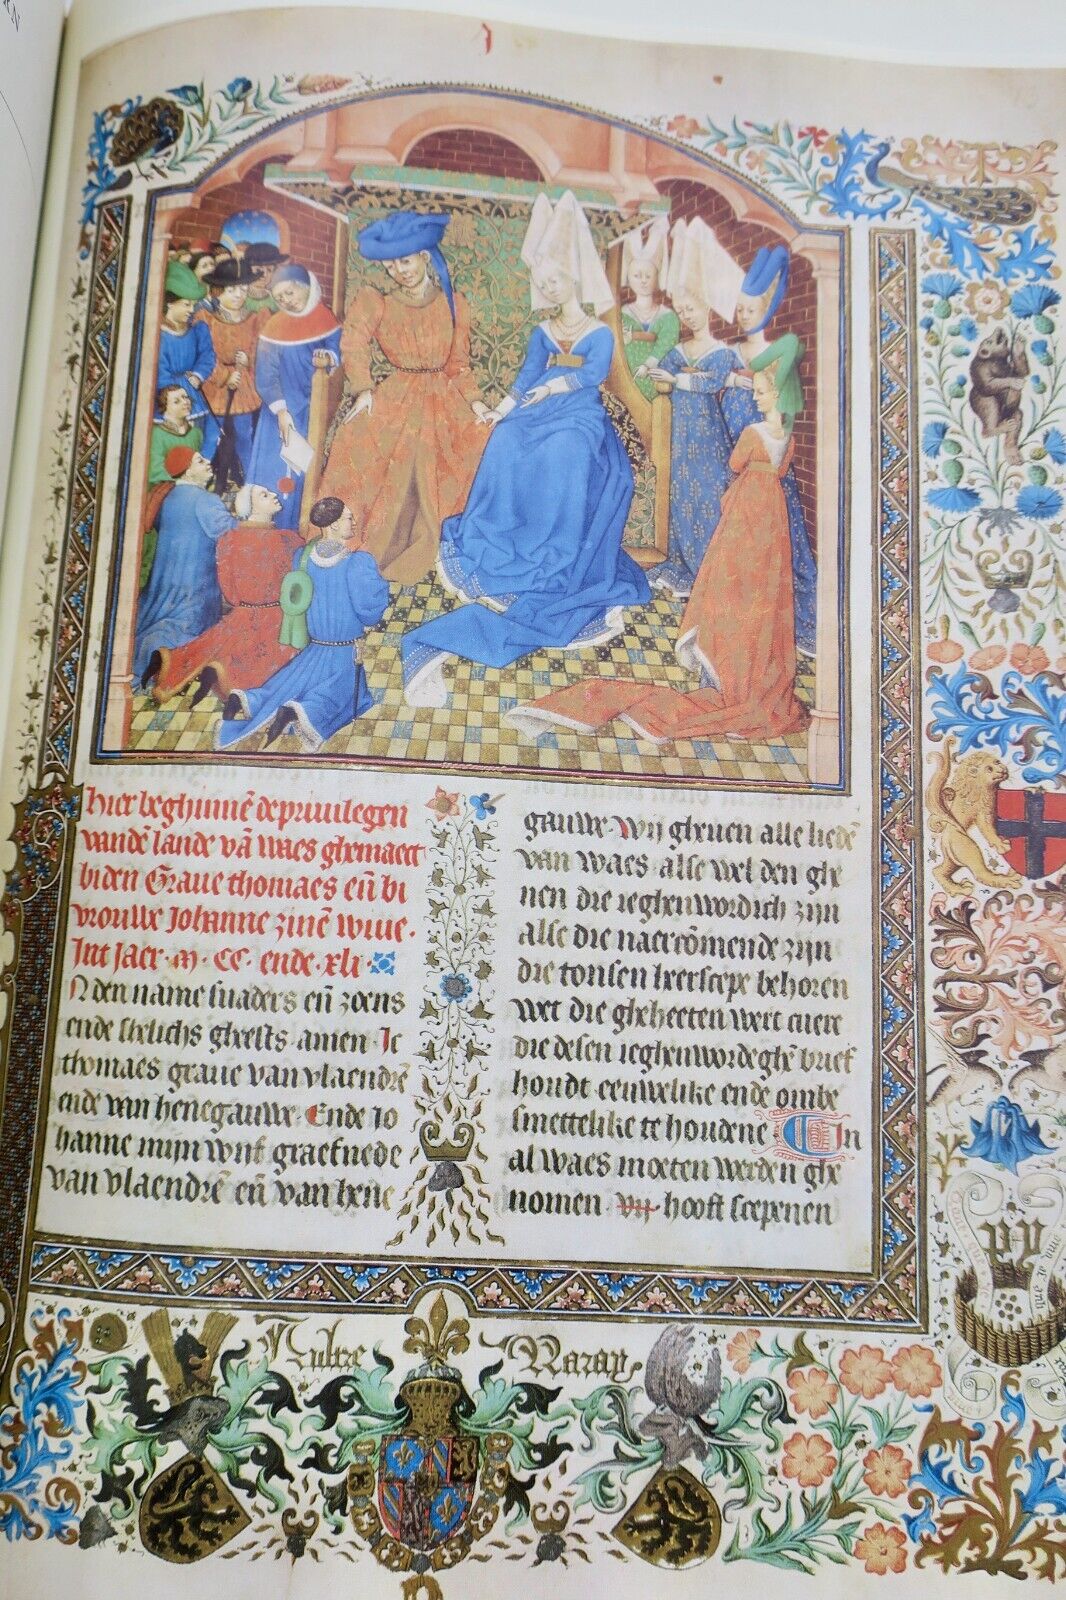 Hier beghinnē de privilegen
vandē lande vā waes ghemaect
bi den Grave thomaes eñ bi
vrouwe Johanne zinē wive.
Int Jaer · M · CC · ende · xli ·
N den name svaders eñ zoens
ende shelichs gheests amen Ic
thomaes grave van vlaendrē
ende van henegauwe. Ende Jo
hanne mijn wijf graefnede
van vlaendrē eñ van hene
gauwe. Wij gheven alle liedē
van waes alse wel den ghe
nen die ieghenwordich zijn
alse die nacrōmende zijn
die tonsen heerscepe behoren
wet die gheheeten wert cuere
die desen ieghenwordeghē brief
houdt eeuwelike ende ombe
smettelike te houdene In
al waes moeten werden ghe
nomen · vij · hooft scepenen
Aultre
Naray